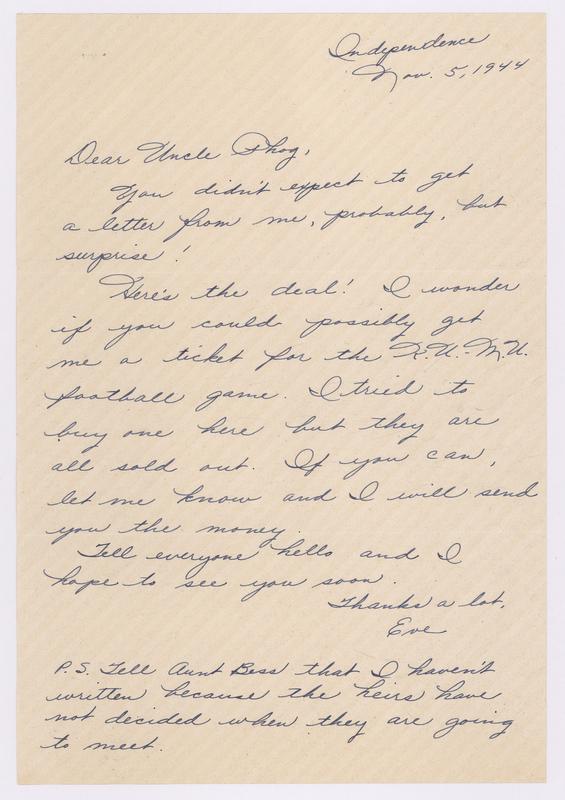 Independence
Nov. 5, 1944
Dear Uncle Phog,
You didn't expect to get
a letter from me, probably, but
surprise!
Here's the deal! I wonder
if you could possibly get
me a ticket for the K.U.-M.U.
football game. I tried to
buy one here but they are
all sold out. If you can,
let me know and I will send
you the money.
Tell everyone hello and I
hope to see you soon.
Thanks a lot,
Eve
P.S. Tell Aunt Bess that I haven't
written because the heirs have
not decided when they are going
to meet.